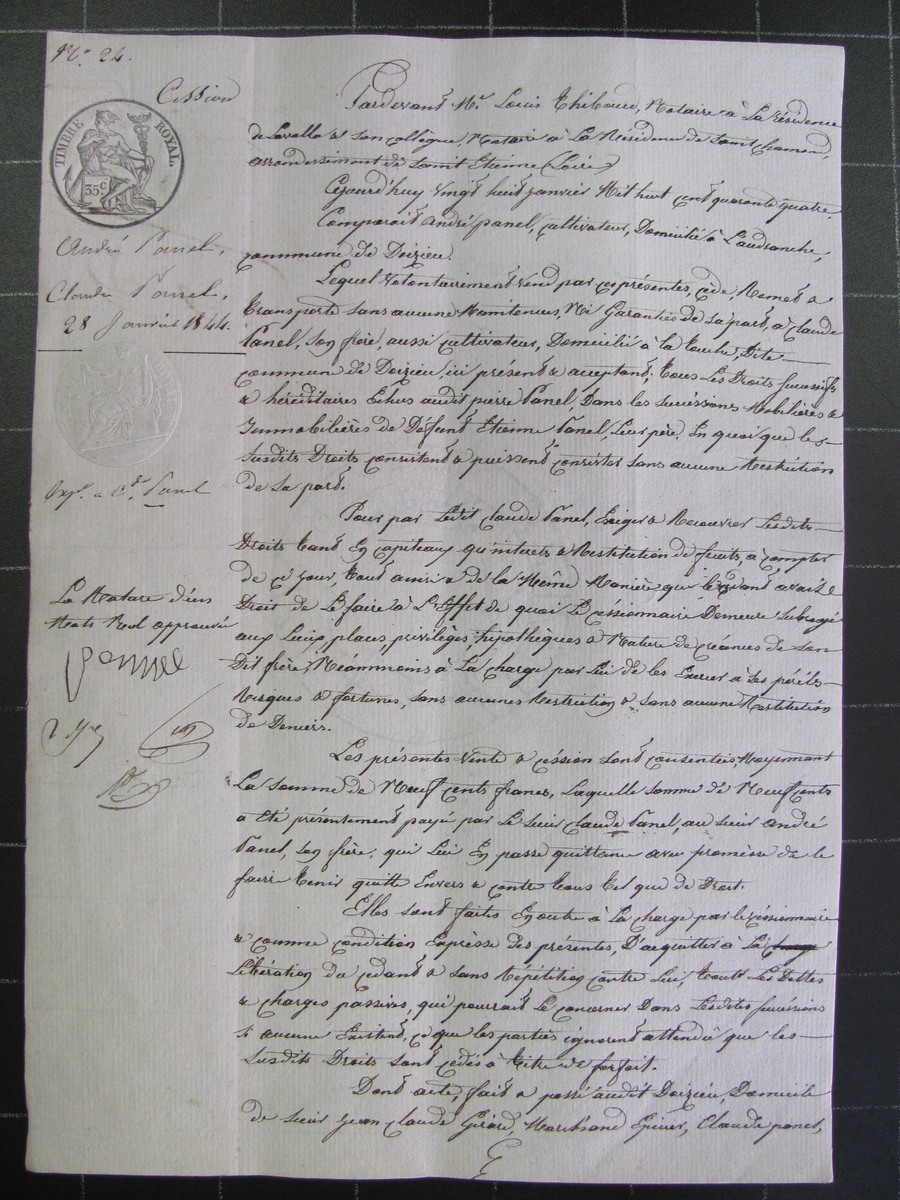 N° 24.
Cession
TIMBRE ROYAL.
35 c
André Panel,
Claude Panel,
28 Janvier 1844.
Exp. a Cde Panel
La Rature d'un
Mots Nul approuvé
Pardevant Me Louis Thibaud, Notaire à La Résidence
de Lavalla & son collègue, Notaire à La Résidence de Saint Chamond,
arrondissement de Saint Etienne (Loire)
Cejourd'huy Vingt huit janvier Mil huit cent quarante quatre,
Comparait André panel, cultivateur, Domicilié à Laudranche,
commune de Doizieu.
Lequel Volontairement vend par ces présentes, cède Remet &
transporte sans aucune Maintenue, Ni Garantie de sa part, à claude
Panel, son frère, aussi cultivateur, Domicilié à la touche, Dite
commune de Doizieu, ici présent & aceptant, tous Les Droits successifs
& héréditaires Echus audit pierre Panel, Dans les successions Mobilières &
Immobilières de Défunt Etienne Panel, Leur père, En quoi que les
susdits Droits consistent & puissent consister sans aucune Restriction
de sa part.
Pour par Ledit claude Panel, Exiger & Recouvrer Lesdits
Droits tant En capiteaux qu'interets & Restitution de fruits, à compter
de ce jour, tout ainsi & de la Même Manière que le cédant avait
Droit de Le faire à L'Effet de quoi Le cessionnaire Demeure subrogé
aux Lieux, places, privilèges, hypothèques & Nature de créances de son
Dit frère, Néammoins à La charge par Lui de les Exercer à ses périls
Risques & fortunes, sans aucunes Restriction & sans aucune Restitution
de Deniers.
Les présentes Vente & cession sont consenties Moyennant
La somme de Neuf cents francs, Laquelle somme de Neuf cents
a Eté présentement payé par Le sieur claude Panel, au sieur André
Panel, son frère, qui Lui En passe quittance avec promesse de le
faire tenir quitte Envers & contre tous tel que de Droit.
Elles sont faites En outre à La charge par le cessionnaire
& comme condition Expresse des présentes, D'acquitter à La
Libération du cédant & sans Répétition contre Lui, toutes Les Dettes
& charges passives, qui pourrait Le concerner Dans Lesdites successions
si aucune Existent, ce que les parties ignorent attendu que les
susdits Droits sont cédés à titre de forfait.
Dont acte, fait & passé audit Doizieu, Domicile
de sieur Jean Claude Girard, Marchand Epicier, Claude panel,